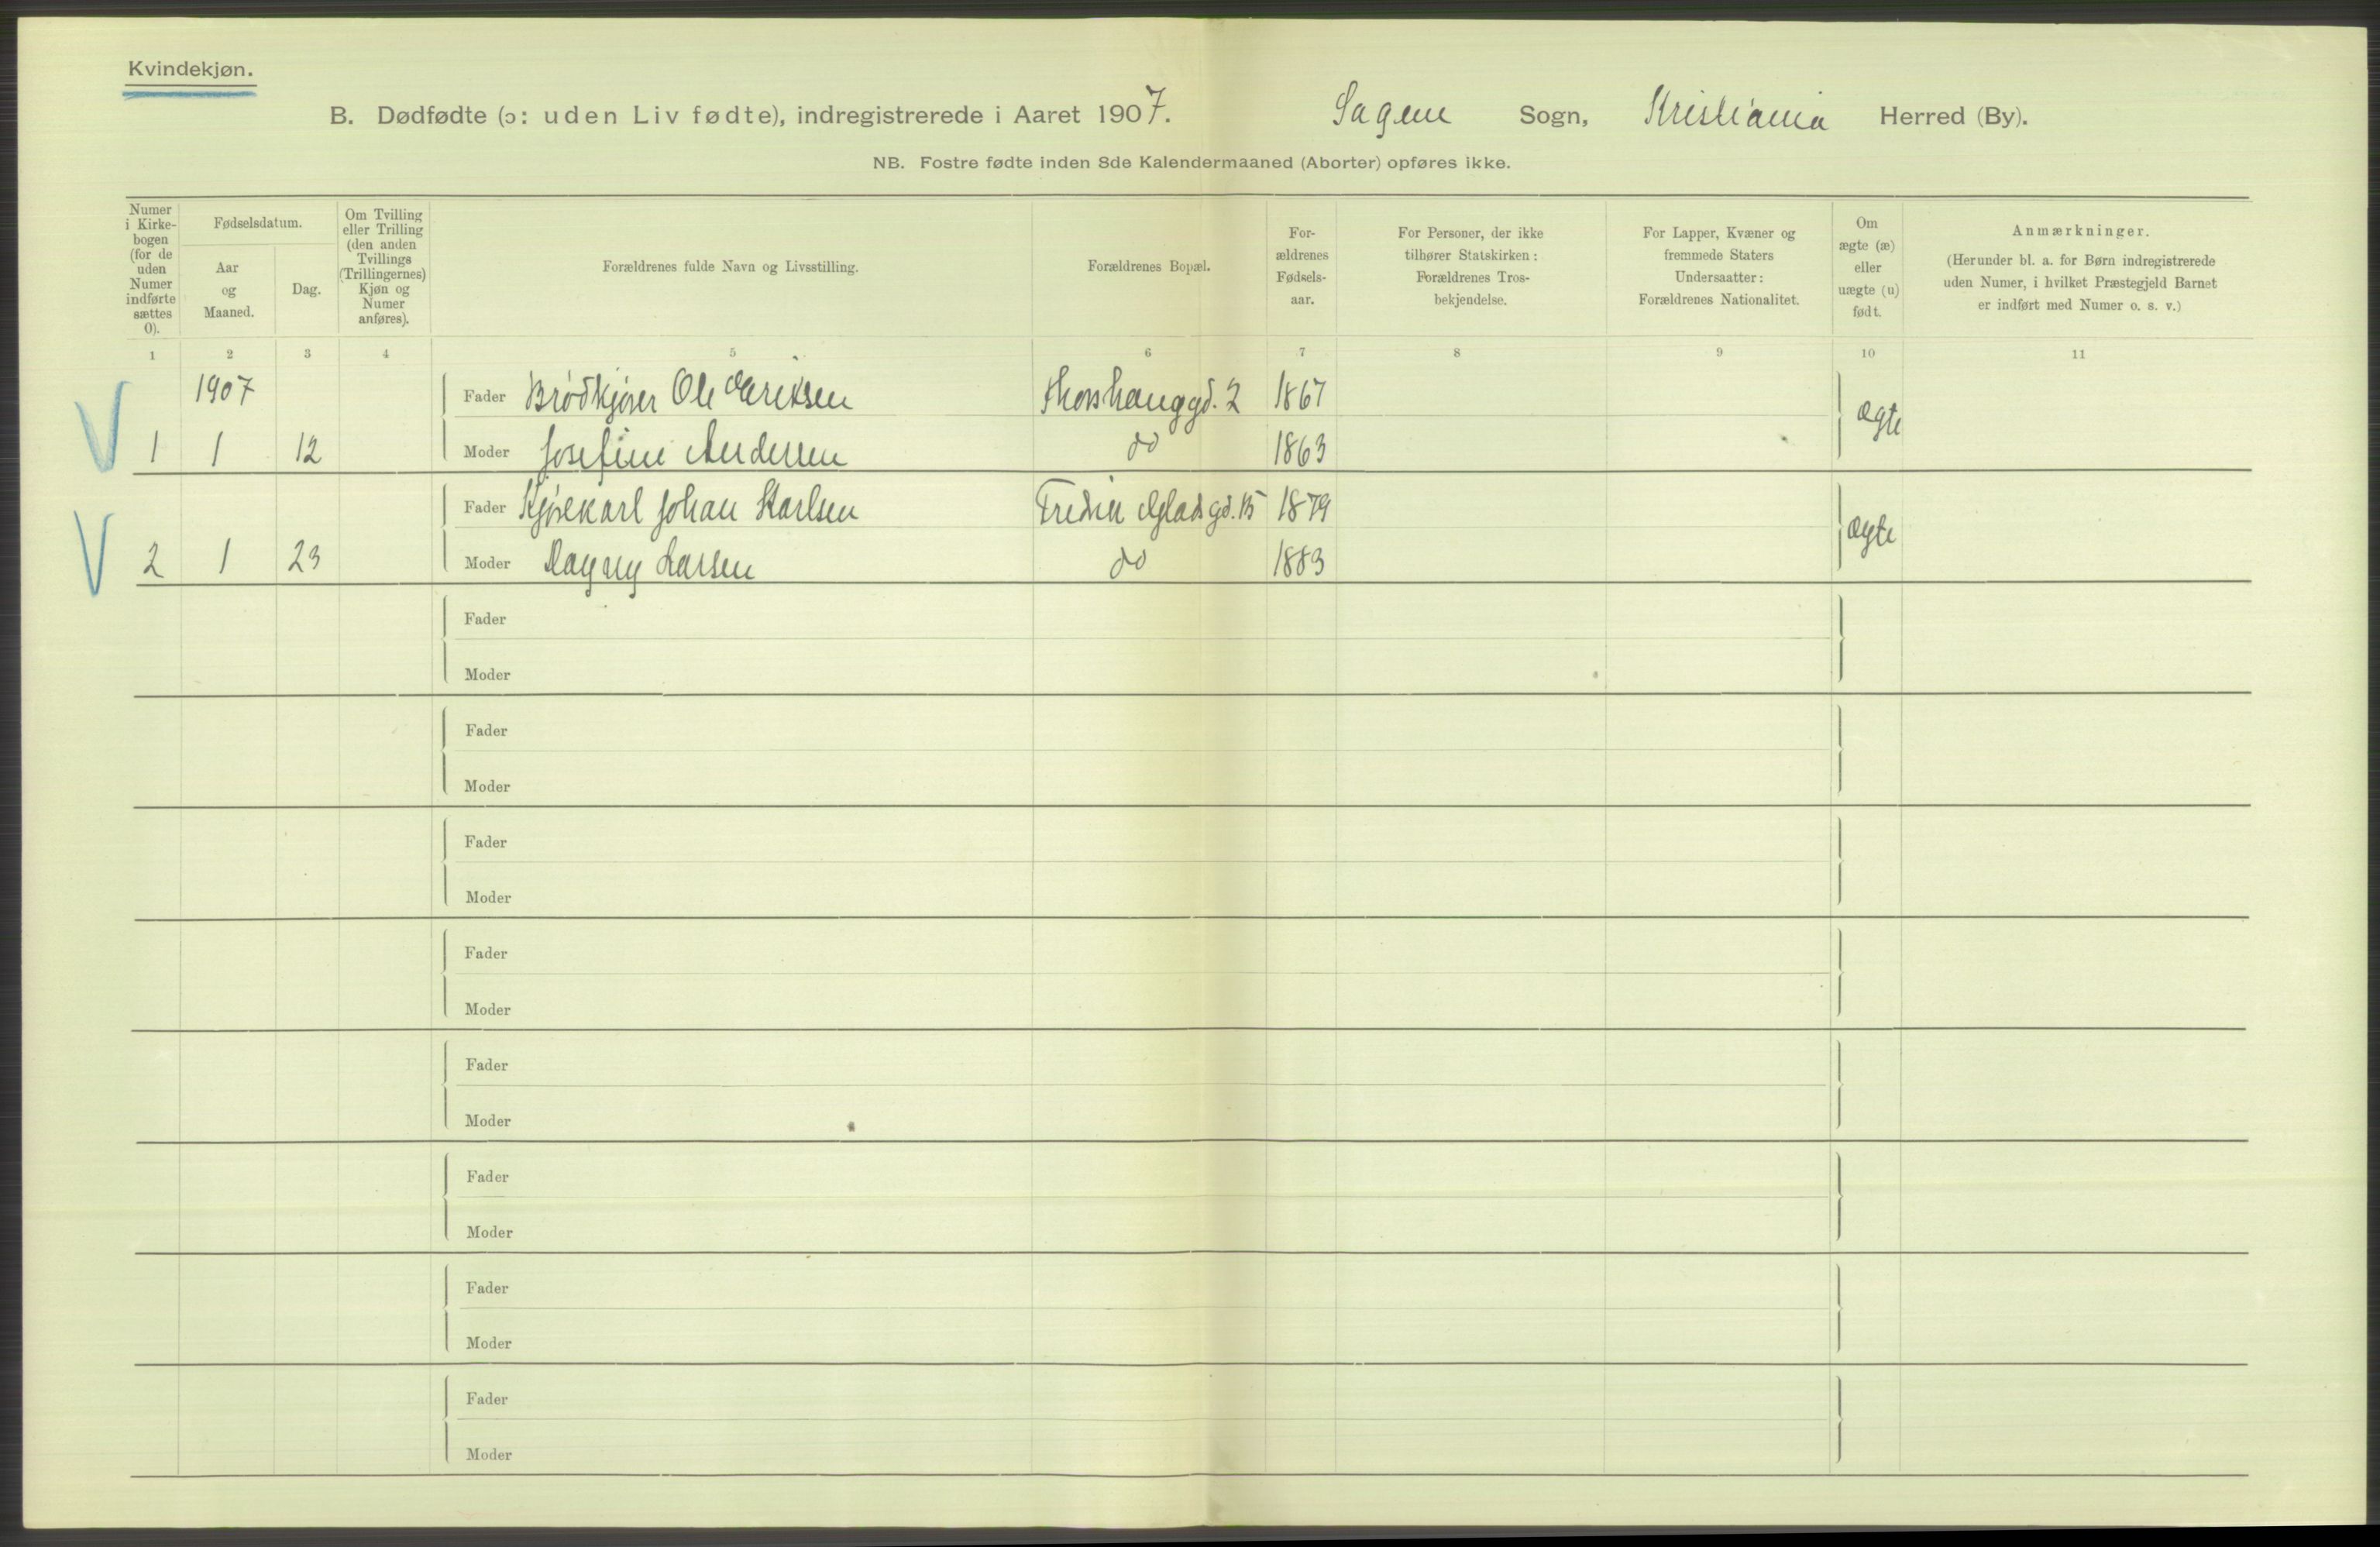 Kvindekjøn.
B. Dødfødte (ɔ: uden Liv fødte), indregistrerede i Aaret 1907. Sagene Sogn, Kristiania Herred (By).
NB. Fostre fødte inden 8de Kalendermaaned (Aborter) opføres ikke.
Numer i Kirke-bogen (for de uden Numer indførte sættes 0).
Fødselsdatum.
Aar og Maaned.
Dag.
Om Tvilling eller Trilling (den anden Tvillings (Trillingernes) Kjøn og Numer anføres).
Forældrenes fulde Navn og Livsstilling.
Forældrenes Bopæl.
For-ældrenes Fødsels-aar.
For Personer, der ikke tilhører Statskirken: Forældrenes Tros-bekjendelse.
For Lapper, Kvæner og fremmede Staters Undersaatter: Forældrenes Nationalitet.
Om ægte (æ) eller uægte (u) født.
Anmærkninger.
(Herunder bl. a. for Børn indregistrerede uden Numer, i hvilket Præstegjeld Barnet er indført med Numer o. s. v.)
1 2 3 4 5 6 7 8 9 10 11
1907 Fader Brødkjører Ole Eriksen Thorshauggd. 2 1867 ægte
1 1 12 Moder Josefine Andersen do 1863
Fader Kjørekarl Johan Karlsen Fredrik Gladsgd. 15 1879 ægte
2 1 23 Moder Dagny Larsen do 1883
Fader
Moder
Fader
Moder
Fader
Moder
Fader
Moder
Fader
Moder
Fader
Moder
Fader
Moder
Fader
Moder